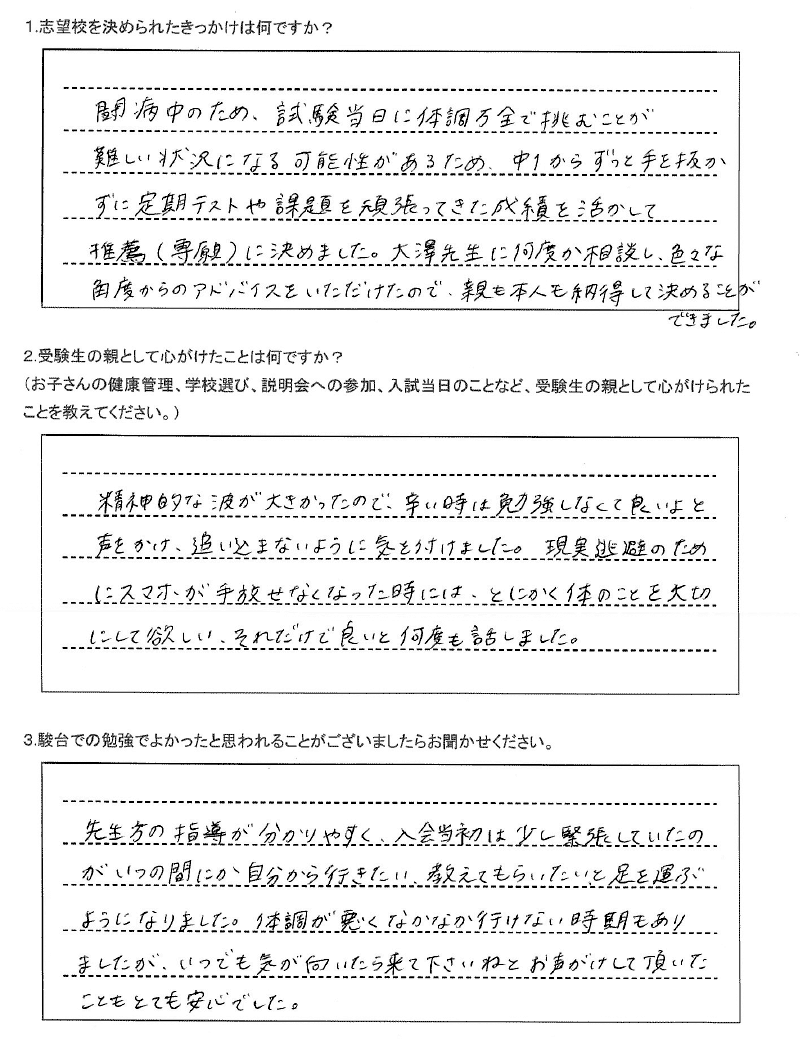 1.志望校を決められたきっかけは何ですか？
闘病中のため、試験当日に体調万全で挑むことが
難しい状況になる可能性があるため、中1からずっと手を抜か
ずに定期テストや課題を頑張ってきた成績を活かして
推薦(専願)に決めました。大澤先生に何度か相談し、色々な
角度からのアドバイスをいただけたので、親も本人も納得して決めることが
できました。
2.受験生の親として心がけたことは何ですか？
(お子さんの健康管理、学校選び、説明会への参加、入試当日のことなど、受験生の親として心がけられた
ことを教えてください。)
精神的な波が大きかったので、辛い時は勉強しなくて良いよと
声をかけ、追い込まないように気を付けました。現実逃避のため
にスマホが手放せなくなった時には、とにかく体のことを大切
にして欲しい、それだけで良いと何度も話しました。
3.駿台での勉強でよかったと思われることがございましたらお聞かせください。
先生方の指導が分かりやすく、入会当初は少し緊張していたの
がいつの間にか自分から行きたい、教えてもらいたいと足を運ぶ
ようになりました。体調が悪くなかなか行けない時期もあり
ましたが、いつでも気が向いたら来て下さいねとお声がけして頂いた
こともとても安心でした。